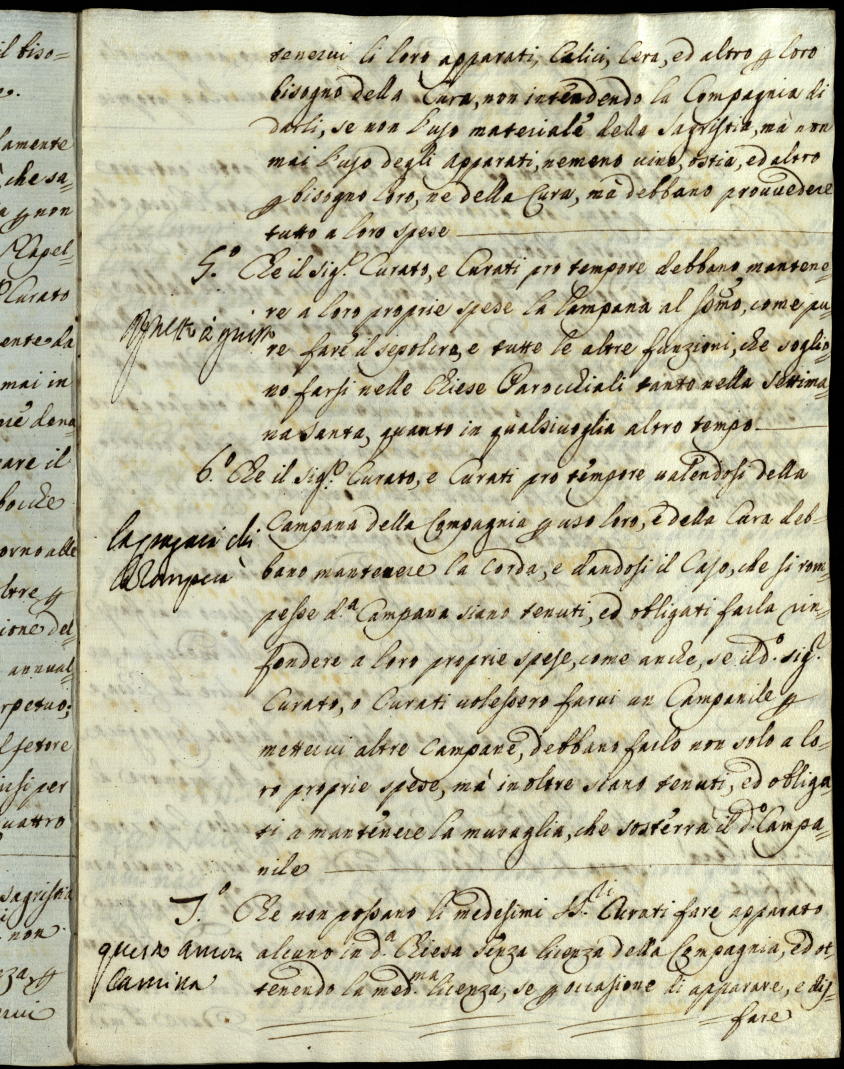 il biso=
lamente
che sa=
a ꝑ non
Capel=
Curato
ente da
mai in
dona
are il
bocche
orno alle
ltre ꝑ
ione del
annual
rpetuo;
fetore
per
uattro
sagristia
non
ꝑ
tenervi li loro apparati, Calici, Cera, ed altro ꝑ loro
bisogno della Cura, non intendendo la Compagnia di
darli, se non l'uso materiale della Sagristia, mà non
mai l'uso degli apparati, nemeno vino, ostia, ed altro
ꝑ bisogno loro, ne della Cura, mà debbano provvedere
tutto a loro spese
5.º Che il Sigʳ. Curato, e Curati pro tempore debbano mantene=
re a loro proprie spede la lampana al SSmo, come pu=
re fare il sepolcro, e tutte le altre funzioni, che soglio=
no farsi nelle Chiese Parocchiali tanto nella Settima=
na Santa, quanto in qualsivoglia altro tempo.
6.º Che il Sigʳ. Curato, e Curati pro tempore valendosi della
Campana della Compagnia ꝑ uso loro, e della Cura deb=
bano mantenere la Corda, e dandosi il Caso, che si rom=
pesse d.ª Campana siano tenuti, ed obligati farla rin=
fondere a loro proprie spese, come anche, se il d.º Sigʳ.
Curato, o Curati volessero farvi un Campanile ꝑ
mettervi altre Campane, debbano farlo non solo a lo=
ro proprie spese, mà inoltre siano tenuti, ed obliga=
ti a mantenere la muraglia, che sosterrà il d.º Campa=
nile
7.º Che non possano li medesimi SS.ri Curati fare apparato
questa ancora
camina
alcuno in d.ª Chiesa senza licenza della Compagnia, ed ot
tenendo la med.ma licenza, se ꝑ occasione di apparare, e dis=
fare